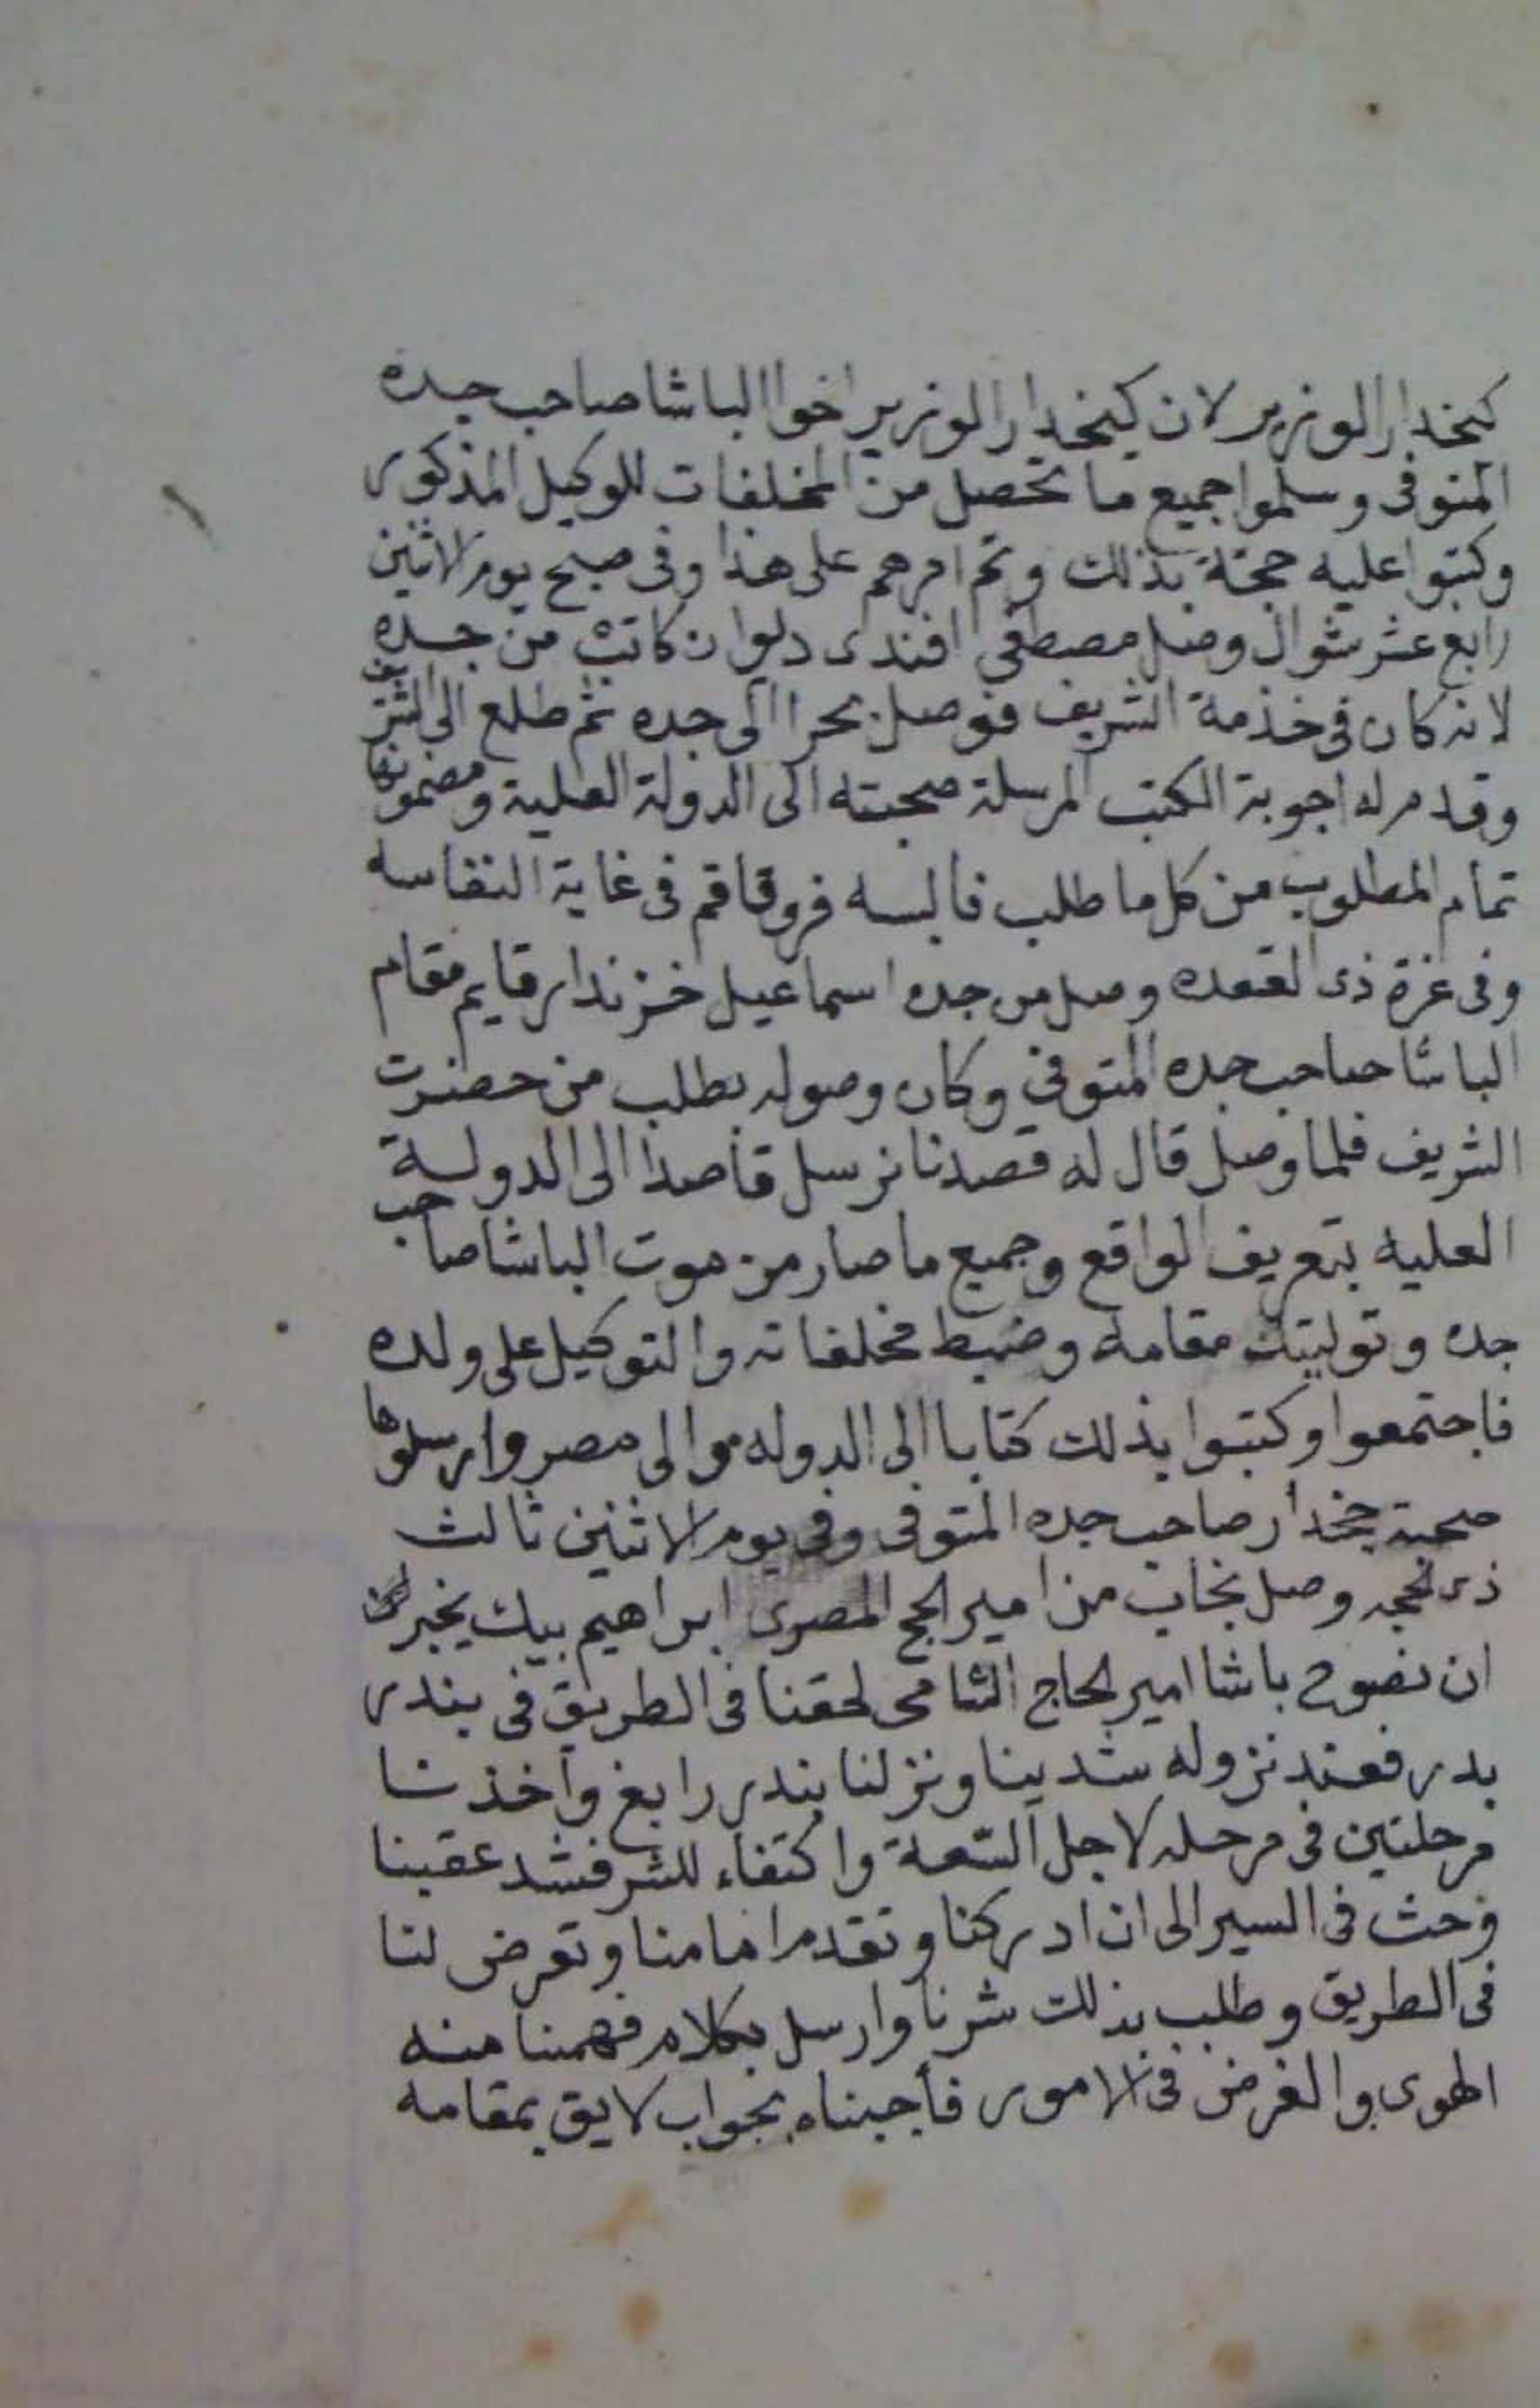 كيخدار الوزير لان كيخدار الوزير اخوا الباشا صاحب جده
المتوفى وسلموا جميع ما تحصل من المخلفات للوكيل المذكور
وكتبوا عليه حجة بذلك وتم امرهم على هذا وفى صبح يوم الاثنين
رابع عشر شوال وصل مصطفى افندى ديوان كاتب من جده
لانه كان فى خدمة الشريف فوصل بحرا الى جده ثم طلع الى الشريف
وقدم له اجوبة الكتب المرسلة صحبته الى الدولة العلية ومضمونها
تمام المطلوب من كل ما طلب فالبسه فرو قاقم فى غاية النفاسه
وفى غرة ذى القعده وصل من جده اسماعيل خزندار قايم مقام
الباشا صاحب جده المتوفى وكان وصوله بطلب من حضرت
الشريف فلما وصل قال له قصدنا نرسل قاصدا الى الدولة
العليه بتعريف الواقع وجميع ما صار من موت الباشا صاحب
جده وتوليتك مقامه وضبط مخلفاته والتوكيل على ولده
فاجتمعوا وكتبوا بذلك كتابا الى الدوله والى مصر وارسلوها
صحبة جخدار صاحب جده المتوفى وفى يوم الاثنين ثالث
ذى الحجه وصل نجاب من امير الحج المصرى ابراهيم بيك يخبر
ان نصوح باشا امير الحاج الشامى لحقنا فى الطريق فى بندر
بدر فعند نزوله شدينا ونزلنا بندر رابغ واخذنا
مرحلتين فى مرحله لاجل السعة واكتفاء للشر فشد عقبنا
وحث فى السير الى ان ادركنا وتقدم امامنا وتعرض لنا
فى الطريق وطلب بذلك شرنا وارسل بكلام فهمنا منه
الهوى والغرض فى الامور فأجبناه بجواب لايق بمقامه